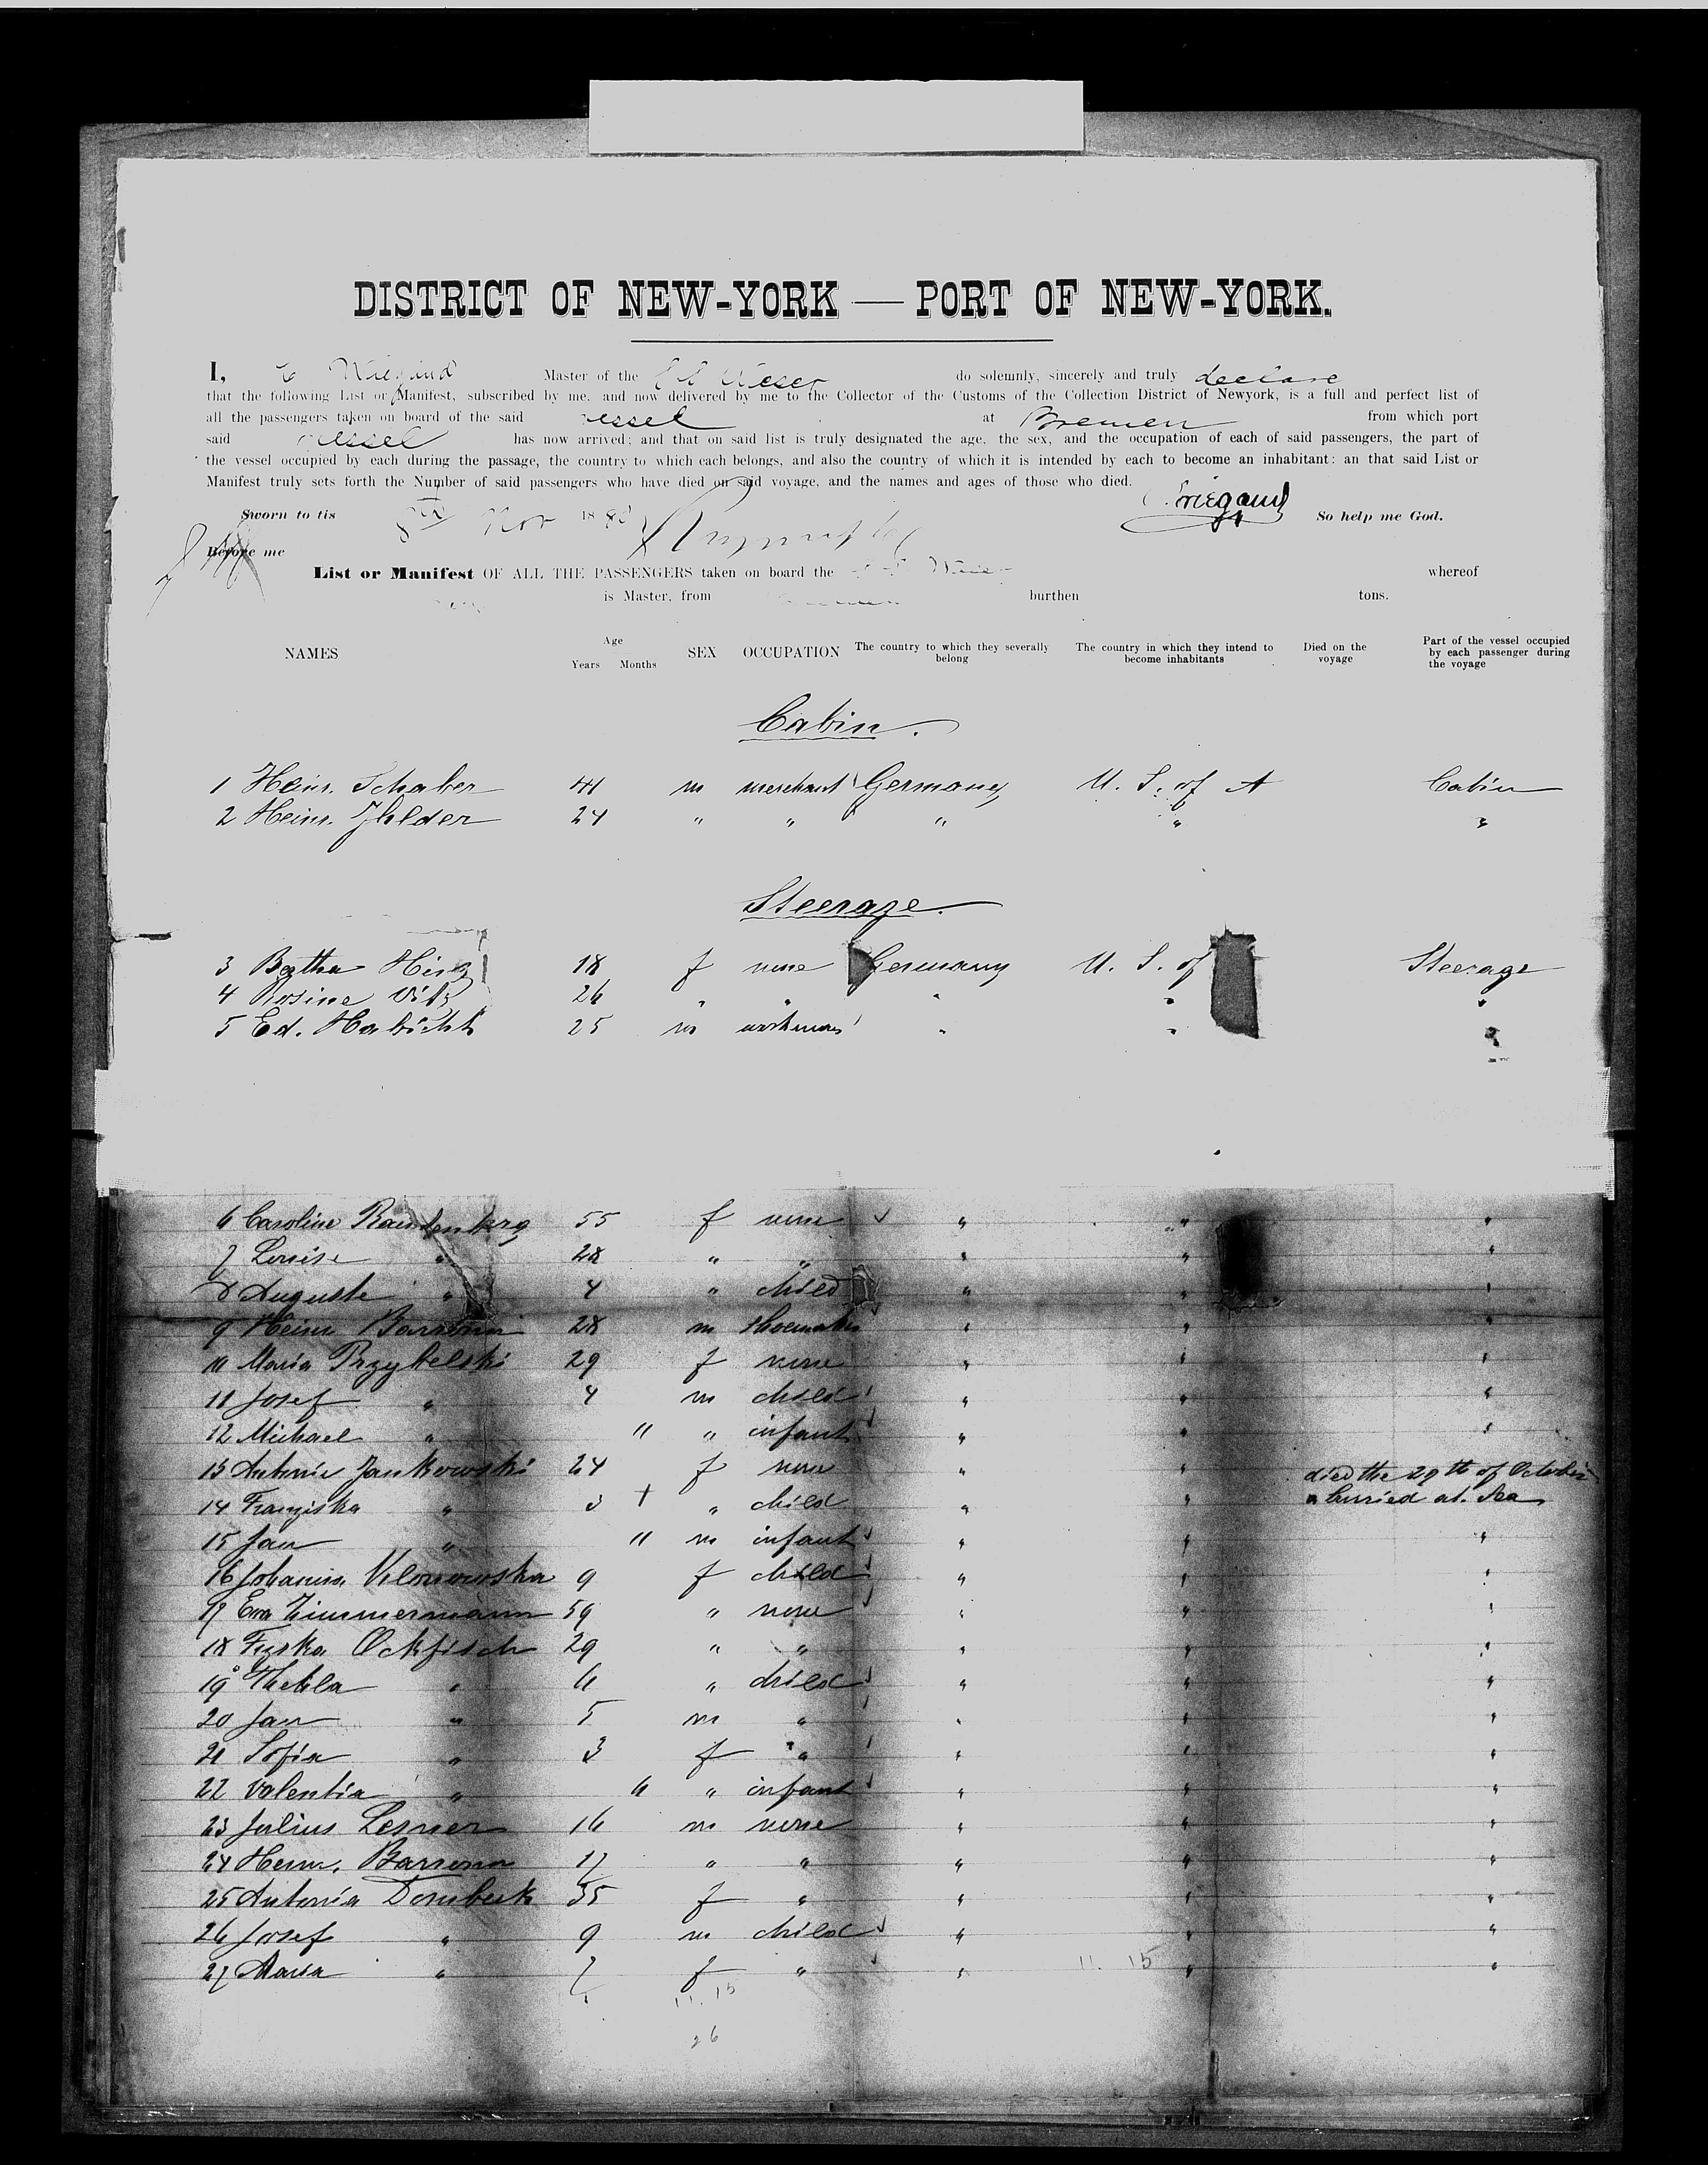 DISTRICT OF NEW-YORK — PORT OF NEW-YORK.
I, Wiegand Master of the Weser do solemnly, sincerely and truly declare
that the following List or Manifest, subscribed by me, and now delivered by me to the Collector of the Customs of the Collection District of Newyork, is a full and perfect list of
all the passengers taken on board of the said vessel at Bremen from which port
said vessel has now arrived; and that on said list is truly designated the age, the sex, and the occupation of each of said passengers, the part of
the vessel occupied by each during the passage, the country to which each belongs, and also the country of which it is intended by each to become an inhabitant: an that said List or
Manifest truly sets forth the Number of said passengers who have died on said voyage, and the names and ages of those who died.
Wiegand
Sworn to tis Nov 18 So help me God.
Before me
List or Manifest OF ALL THE PASSENGERS taken on board the Weser whereof
is Master, from burthen tons.
NAMES Age Years Months SEX OCCUPATION The country to which they severally belong The country in which they intend to become inhabitants Died on the voyage Part of the vessel occupied by each passenger during the voyage
Cabin.
1 Heinr. Schaber 41 m merchant Germany U. S. of A Cabin
2 Heinr. 24 " " " " "
Steerage.
3 Bertha 18 f none Germany U. S. of Steerage
4 Rosine 26 " " " " "
5 Ed. Habicht 25 m workman " " "
6 Caroline 55 f none " " "
7 Louise " 28 " " " " "
8 Auguste " 4 " child " " "
9 Heinr 28 m shoemaker " " "
10 Maria Przybelski 29 f none " " "
11 Josef " 4 m child " " "
12 Michael " " " infant " " "
13 Antonie Jankowski 24 f none " " died the 29th of October
14 Franziska " 3 + " child " " & burried at Sea
15 Jan " " m infant " " "
16 Johanna 9 f child " " "
17 Eva Zimmermann 59 " none " " "
18 Ockfisch 29 " " " " "
19 Thekla " 6 " child " " "
20 Jan " 5 m " " " "
21 Sofia " 3 f " " " "
22 Valentin " " " infant " " "
23 Julius Lesner 16 m none " " "
24 Heinr. 17 " " " " "
25 Antonia Dombeck 35 f " " " "
26 Josef " 9 m child " " "
27 Maria " 7 f " " 11. 15 " "
11. 15
26